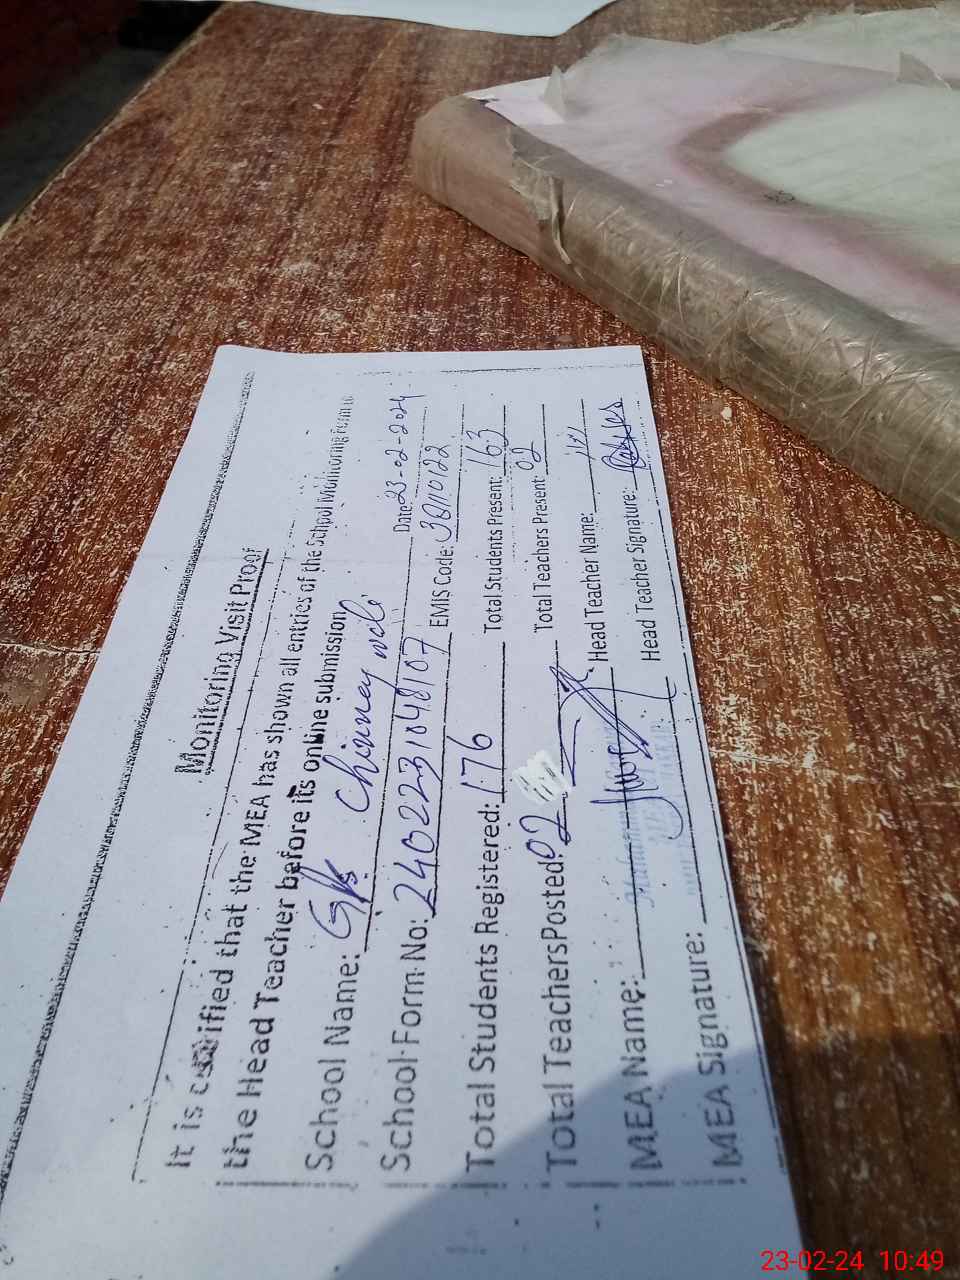 Monitoring Visit Proof
It is certified that the MEA has shown all entries of the School Monitoring Form to
the Head Teacher before its online submission.
School Name: GPS Chimney wali Date: 23-02-2024
School Form No: 2402231048107 EMIS Code: 36110122
Total Students Registered: 176 Total Students Present: 163
Total Teachers Posted: 02 Total Teachers Present: 02
MEA Name: Head Teacher Name:
MEA Signature: Head Teacher Signature:
23-02-24 10:49